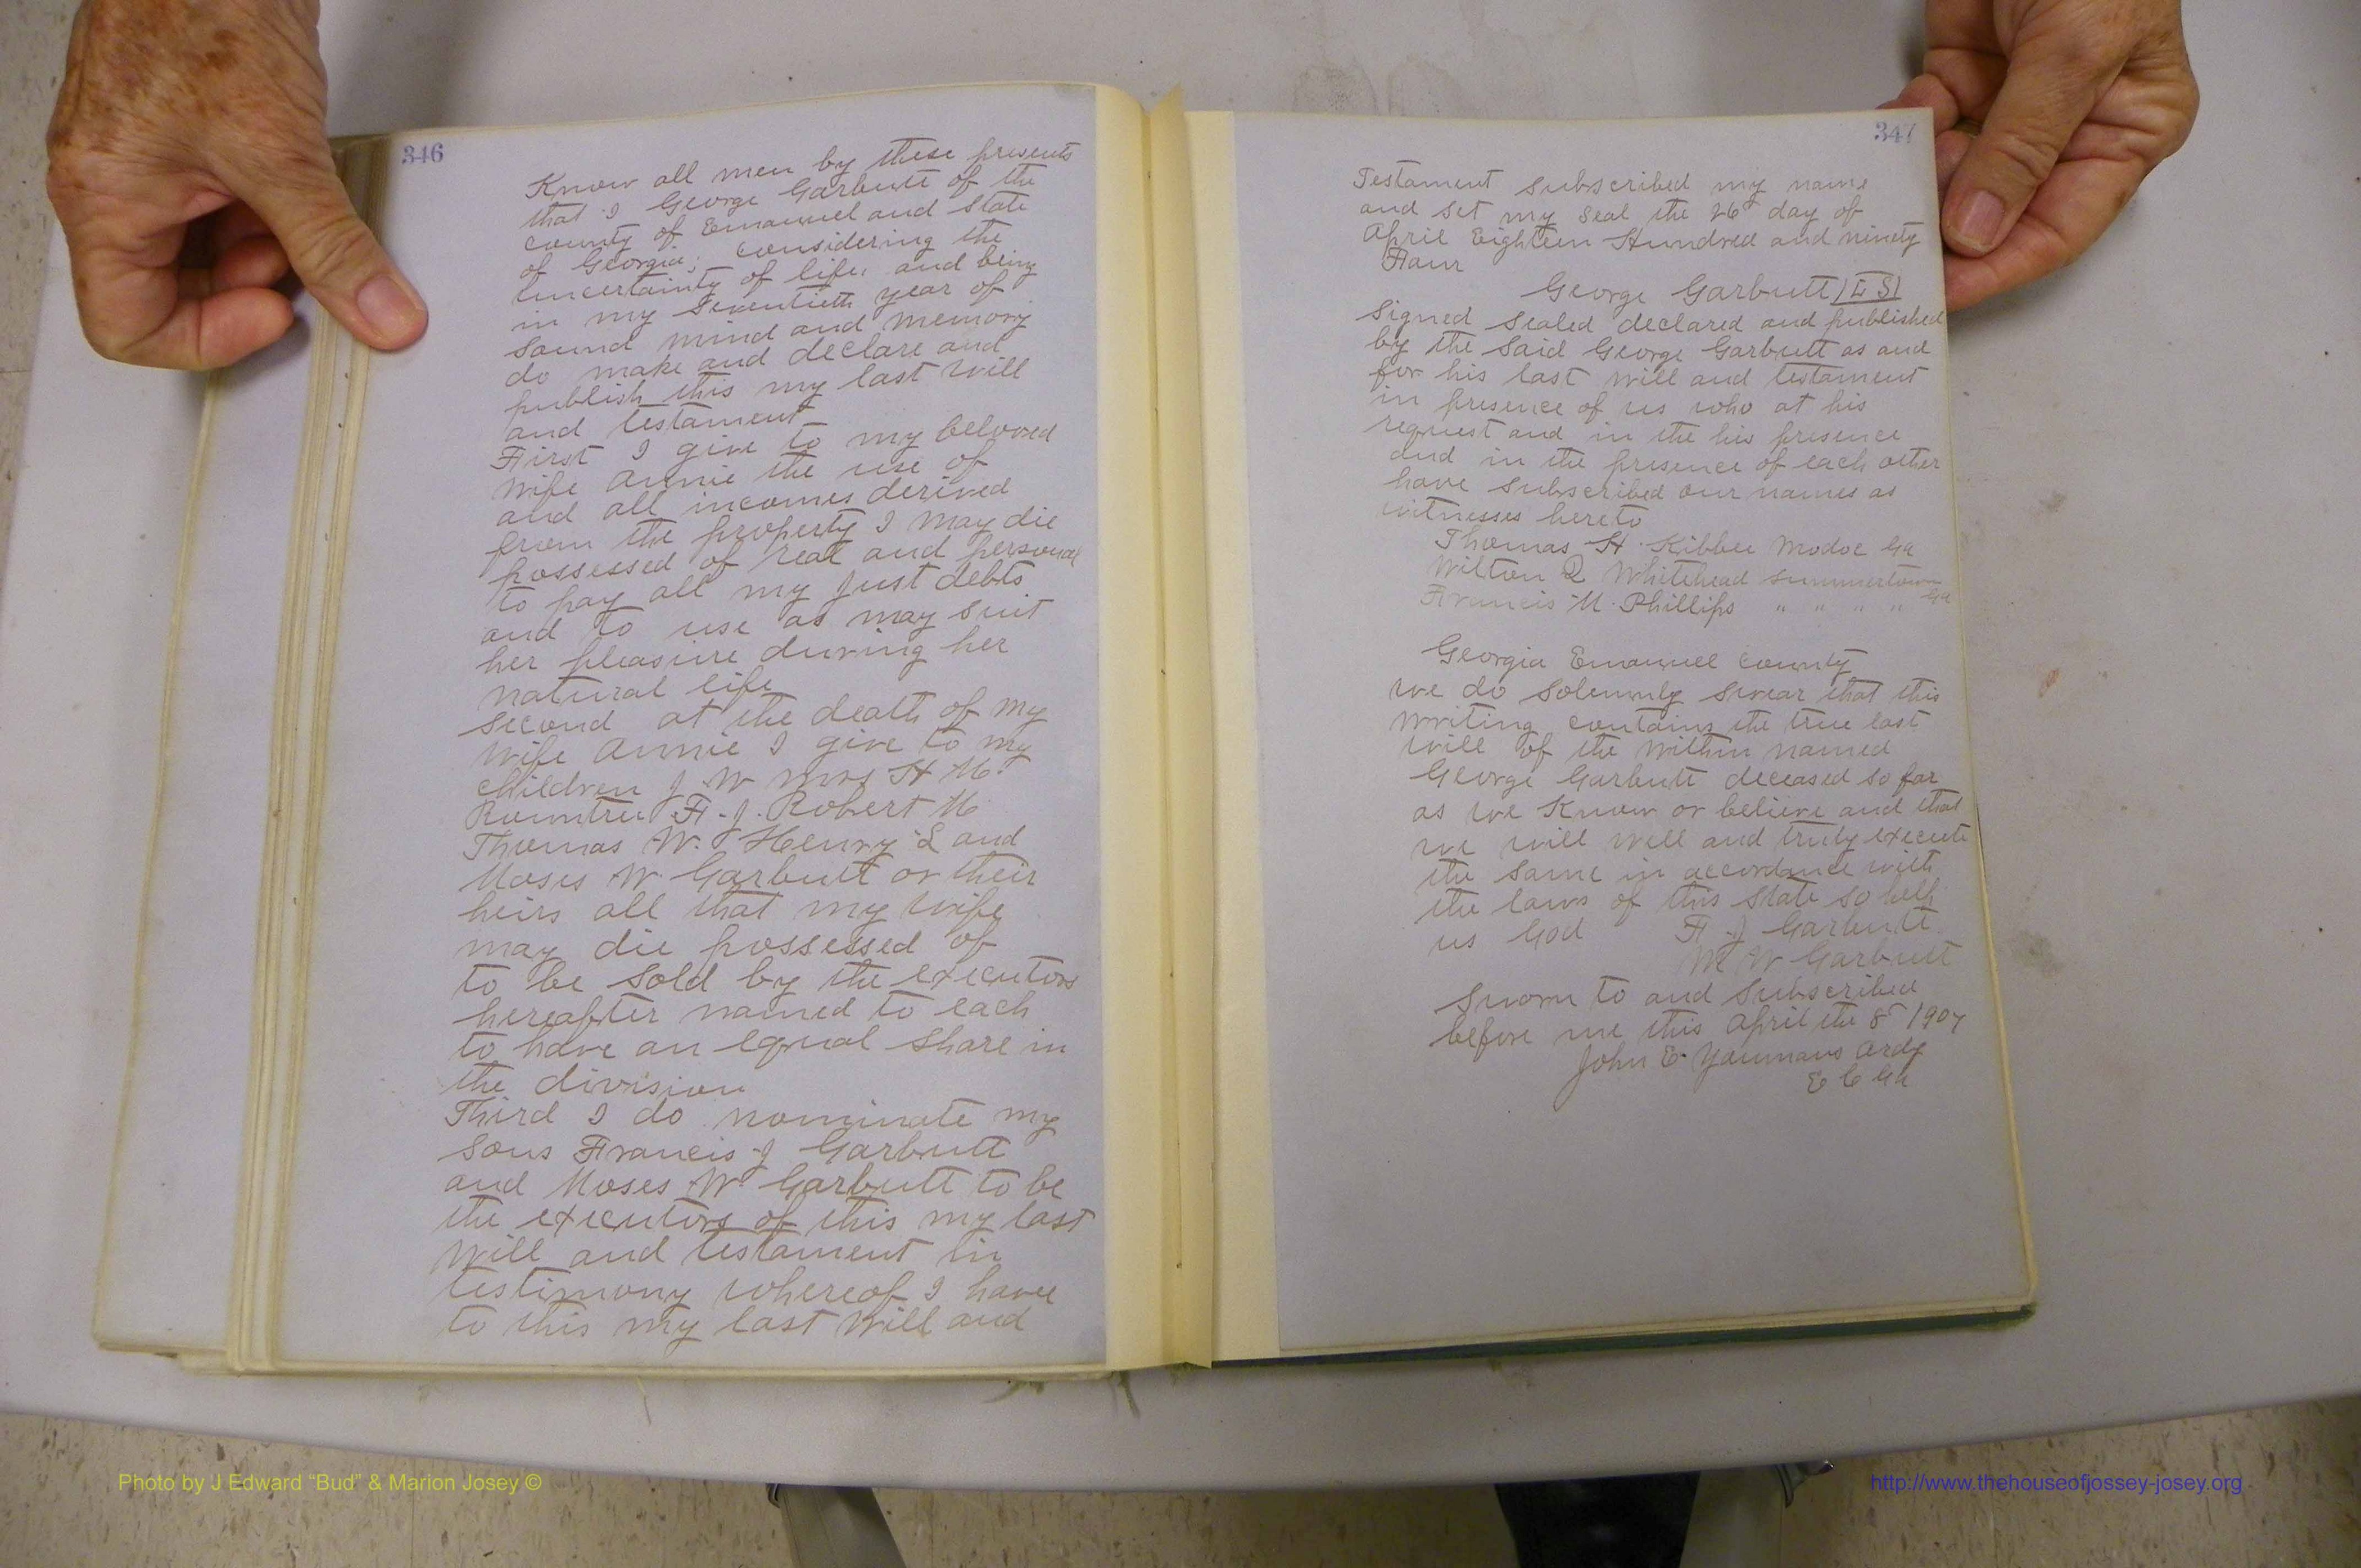 346
Know all men by these presents
that I George Garbutt of the
county of Emanuel and State
of Georgia; considering the
uncertainty of life, and being
in my Seventieth year of
sound mind and memory
do make and declare and
publish this my last will
and testament
First I give to my beloved
wife Annie the use of
and all incomes derived
from the property I may die
possessed of real and personal
to pay all my just debts
and to use as may suit
her pleasure during her
natural life
second at the death of my
wife Annie I give to my
children J W Mrs H M.
Rountree F. J. Robert M
Thomas W. Henry L and
Moses W Garbutt or their
heirs all that my wife
may die possessed of
to be sold by the executors
hereafter named to each
to have an equal share in
the division
Third I do nominate my
sons Francis J Garbutt
and Moses W Garbutt to be
the executors of this my last
will and testament in
testimony whereof I have
to this my last will and
347
Testament subscribed my name
and set my seal the 26 day of
April Eighteen Hundred and ninety
Four
George Garbutt (L S)
Signed sealed declared and published
by the said George Garbutt as and
for his last will and testament
in presence of us who at his
request and in the his presence
and in the presence of each other
have subscribed our names as
witnesses hereto
Thomas H. Kibbee Modoc Ga
Wilton R Whitehead Summertown
Francis M. Phillips " " " " Ga
Georgia Emanuel County
we do solemnly swear that this
writing contains the true last
will of the within named
George Garbutt deceased so far
as we know or believe and that
we will well and truly execute
the same in accordance with
the laws of this state so help
us God F J Garbutt
M W Garbutt
Sworn to and subscribed
before me this April the 8 1907
John E Youmans Ordy
E C Ga
Photo by J Edward “Bud” & Marion Josey ©
http://www.thehouseofjossey-josey.org